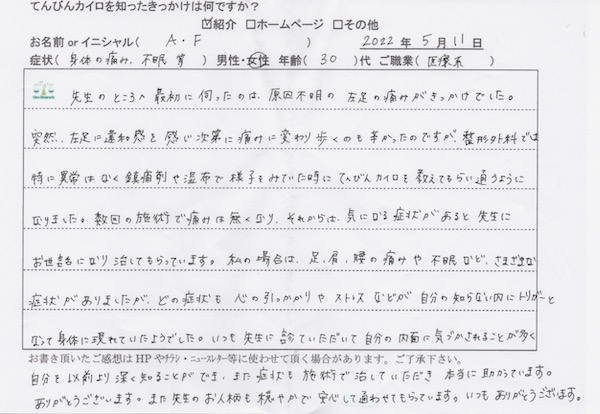 てんびんカイロを知ったきっかけは何ですか?
☑紹介 □ホームページ □その他
お名前 or イニシャル( A・F ) 2022 年 5 月 11 日
症状( 身体の痛み、不眠 等 ) 男性・女性 年齢( 30 )代 ご職業( 医療系 )
先生のところへ最初に伺ったのは、原因不明の左足の痛みがきっかけでした。
突然、左足に違和感を感じ次第に痛みに変わり歩くのも辛かったのですが、整形外科では
特に異常はなく鎮痛剤や湿布で様子をみていた時にてんびんカイロを教えてもらい通うように
なりました。数回の施術で痛みは無くなり、それからは、気になる症状があると先生に
お世話になり治してもらっています。私の場合は、足、肩、腰の痛みや不眠など、さまざまな
症状がありましたが、どの症状も心の引っかかりやストレスなどが自分の知らない内にトリガーと
なって身体に現れていたようでした。いつも先生に診ていただいて自分の内面に気づかされることが多く
お書き頂いたご感想は HP やチラシ・ニュースター等に使わせて頂く場合があります。ご了承下さい。
自分を以前より深く知ることができ、また症状も施術で治していただき本当に助かっています。
ありがとうございます。また先生のお人柄も穏やかで安心して通わせてもらっています。いつもありがとうございます。